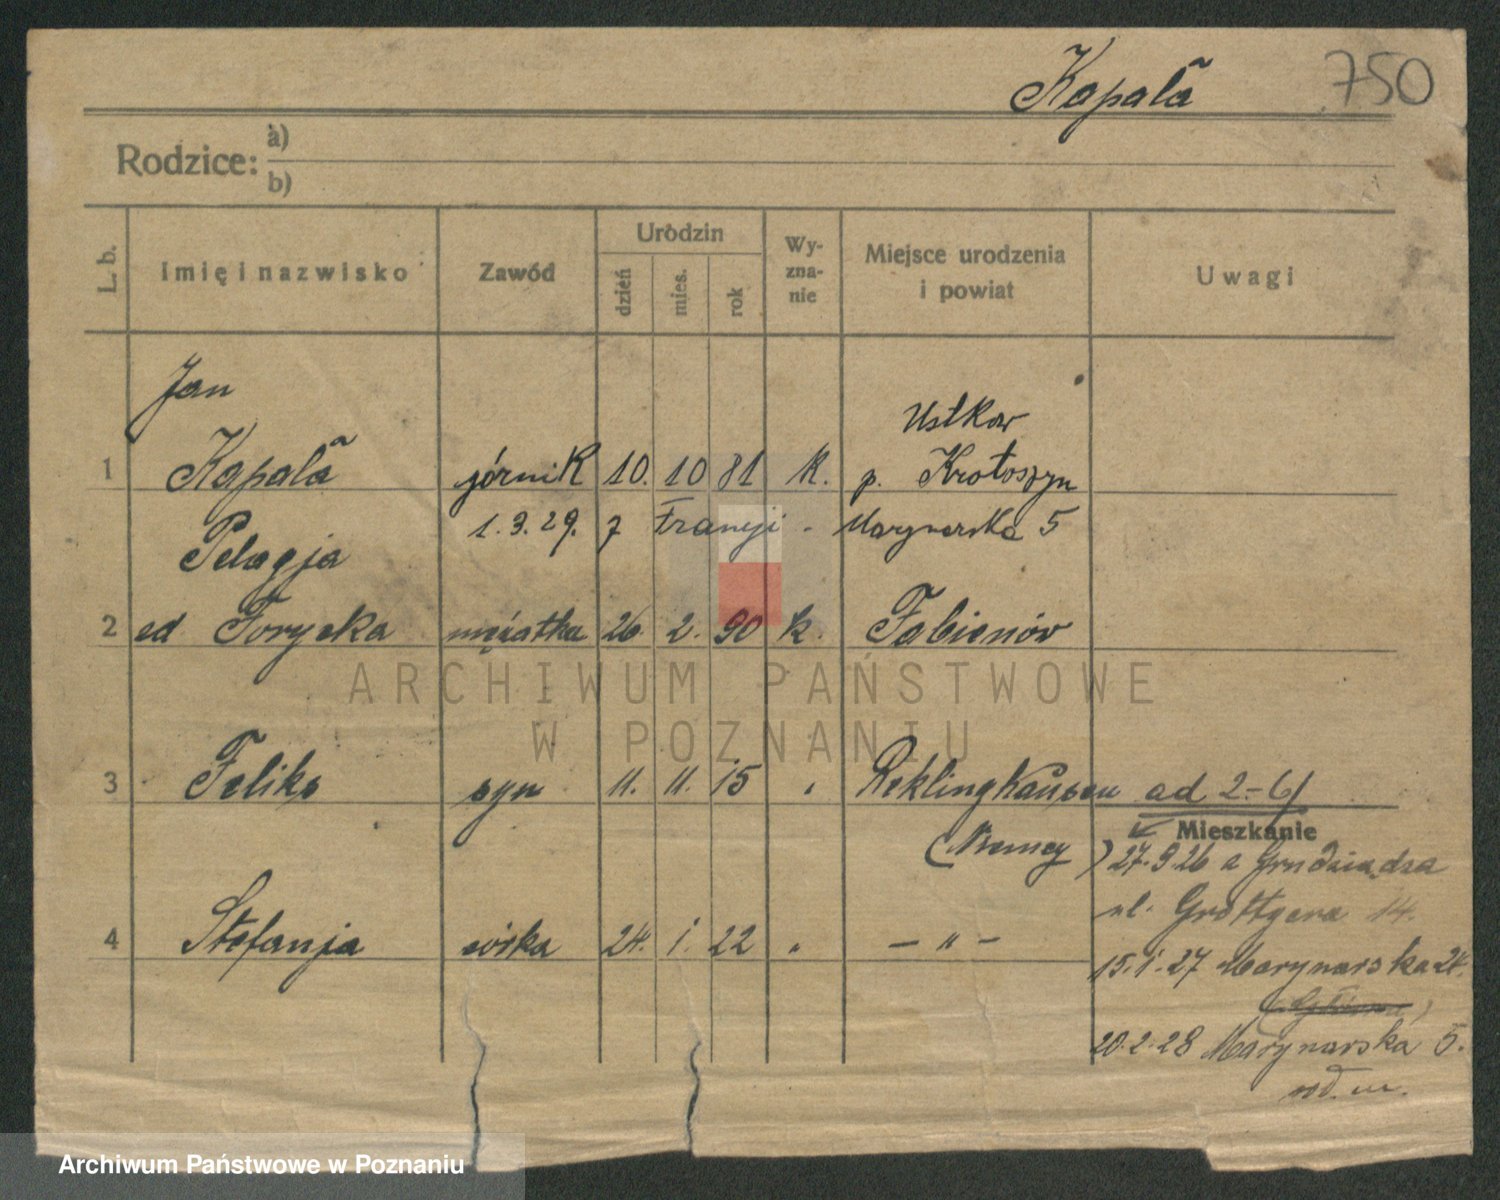 Kapała 750
Rodzice: a)
b)
L. b. Imię i nazwisko Zawód Urodzin dzień mies. rok Wy-zna-nie Miejsce urodzenia i powiat Uwagi
Jan
Ustkow
1 Kapała górnik 10. 10 81 k. p. Krotoszyn
1.3.29. z Francji - Marynarska 5
Pelagja
2 Forycka mężatka 26 2. 90 k. Fabianów
3 Feliks syn 11. 11. 15 " Reklinghausen ad 2-6/
Mieszkanie
(Niemcy) 27.9 26 z Grudziądza
ul. Grottgera 14.
4 Stefanja córka 24. 1. 22 " - " -
15.1.27 Marynarska 24.
20.2.28 Marynarska 5.
ARCHIWUM PAŃSTWOWE
W POZNANIU
Archiwum Państwowe w Poznaniu